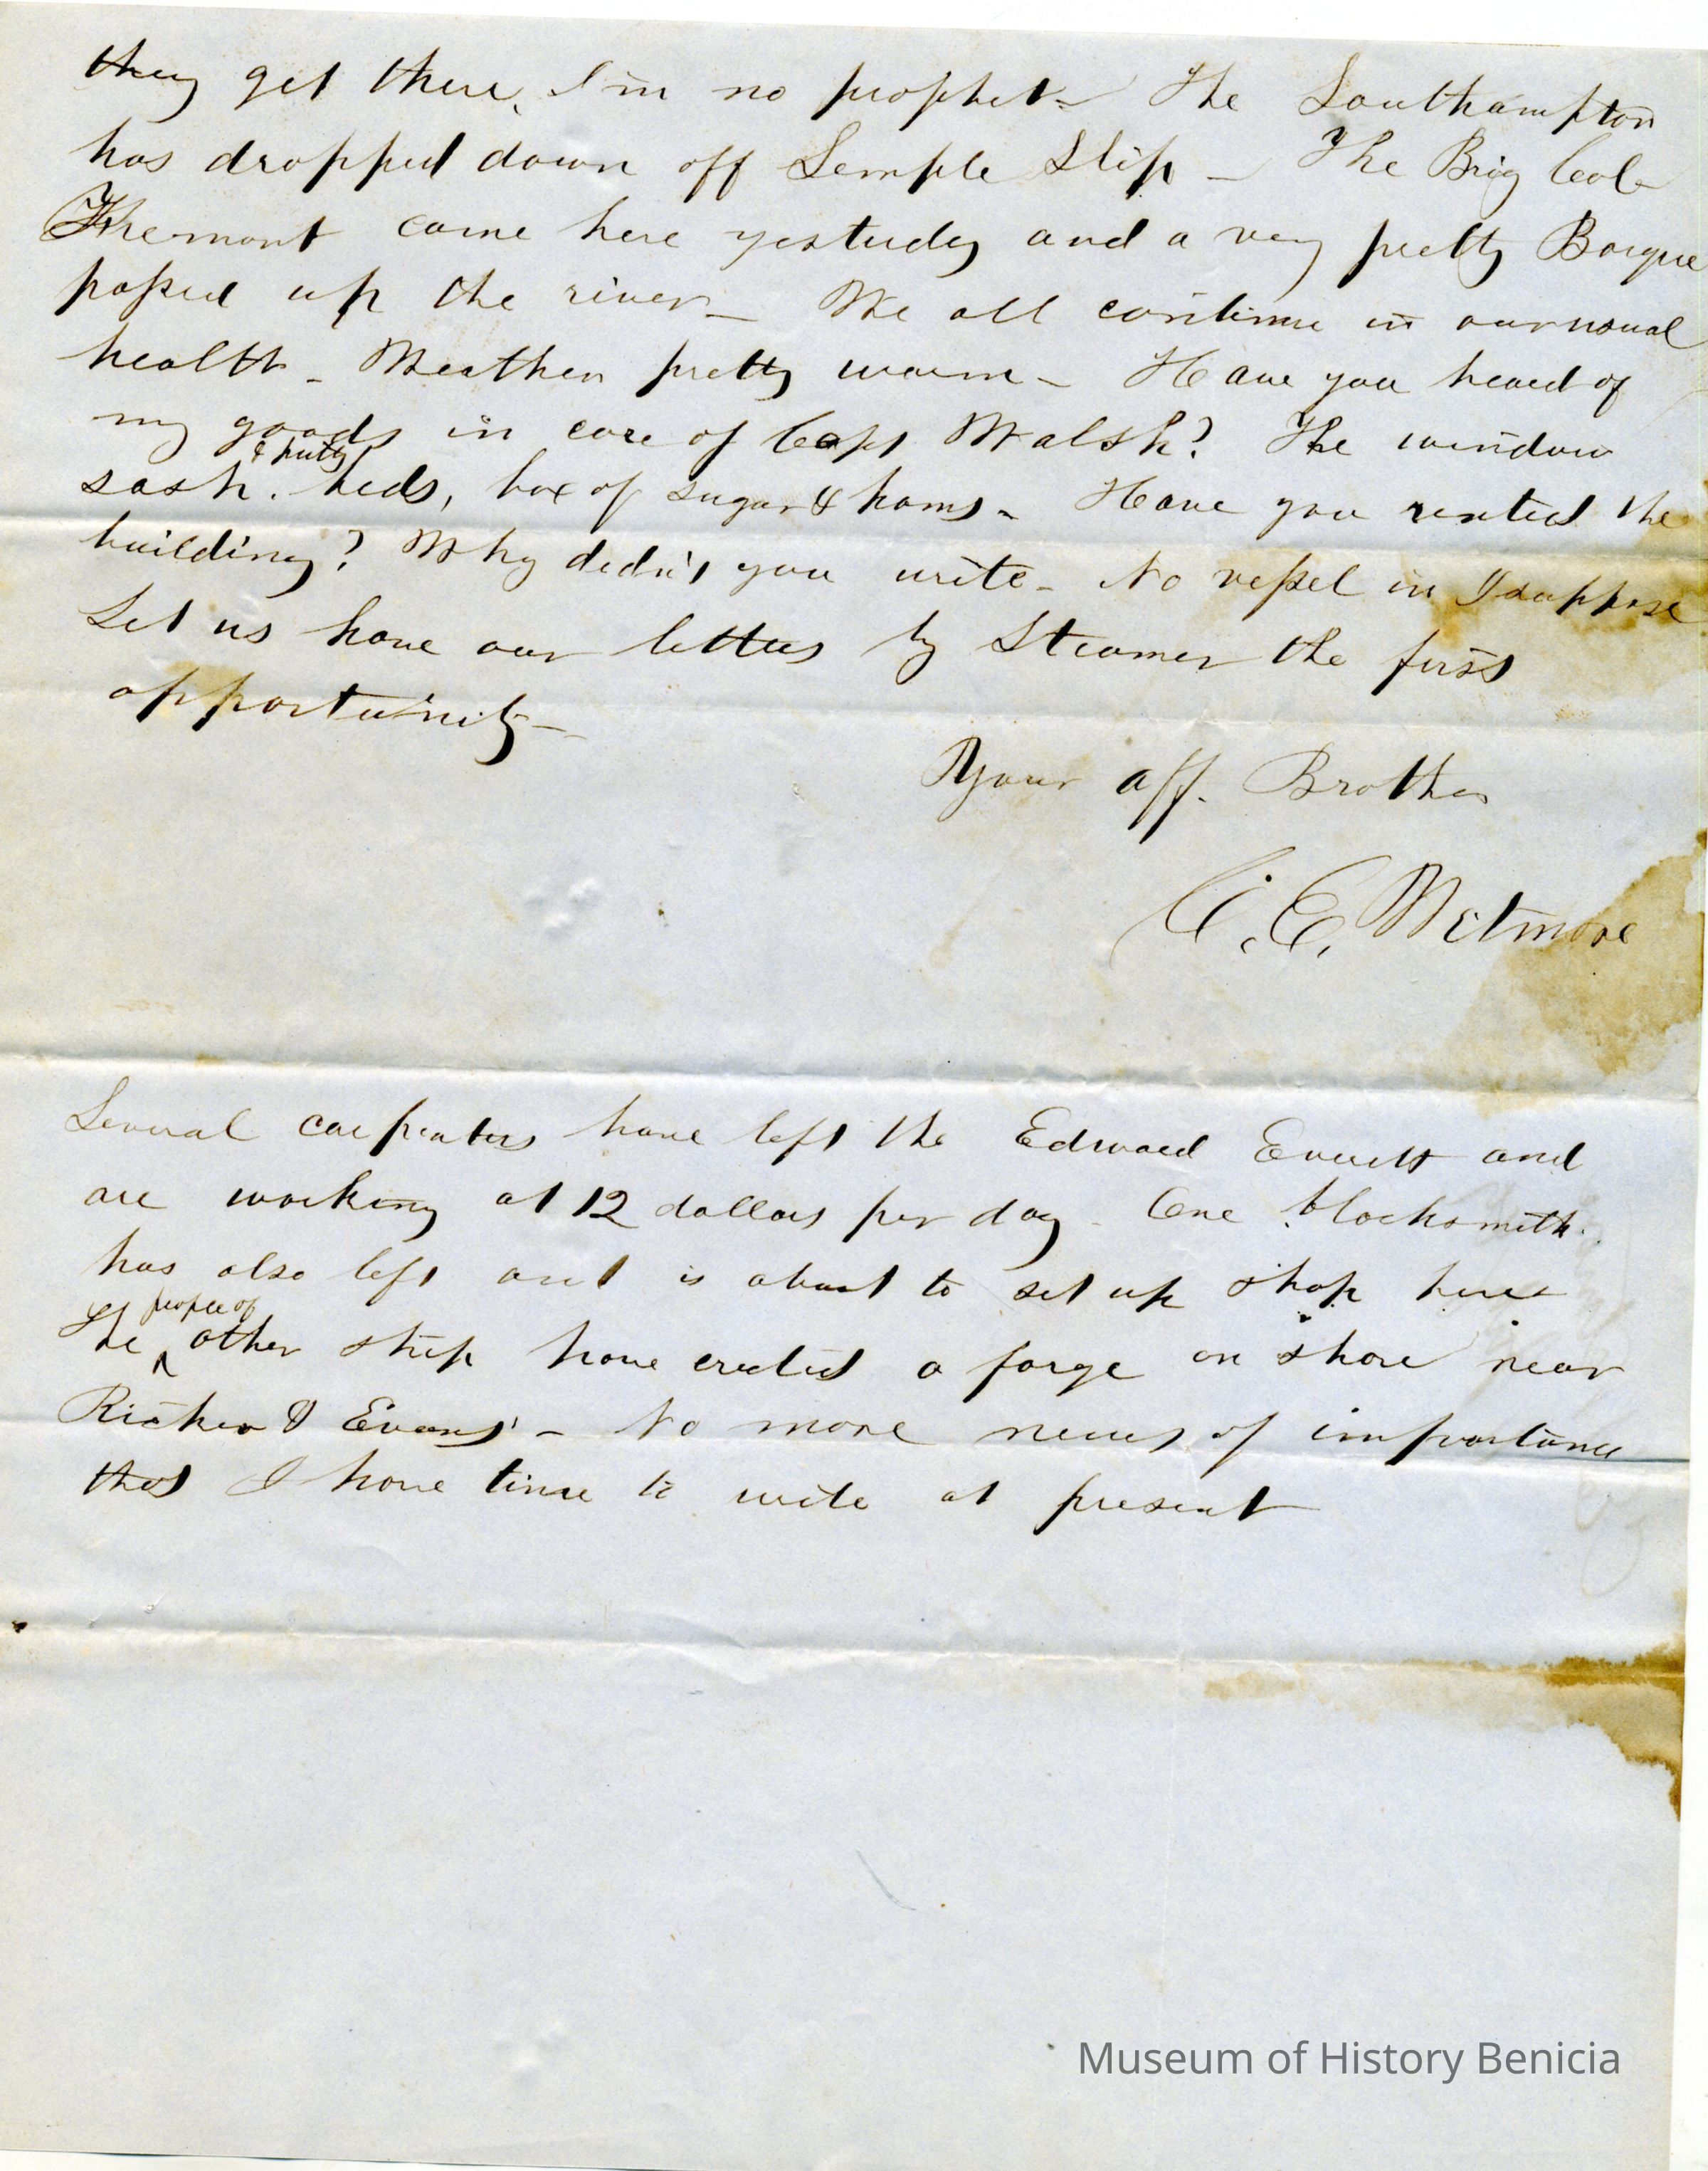 they get there, I'm no prophet - The Southampton
has dropped down off Semple Slip - The Brig Col
Fremont came here yesterday and a very pretty Barque
passed up the river - We all continue in our usual
health - Weather pretty warm - Have you heard of
my goods in care of Capt Walsh? The window
& putty
sash. beds, box of sugar & hams - Have you rented the
building? Why didn't you write - No vessel in I suppose
Let us have our letters by Steamer the first
opportunity -
Your aff. Brother
C. E. Wetmore
Several carpenters have left the Edward Everett and
are working at 12 dollars per day - One blacksmith
has also left and is about to set up shop here
people of
The ^ other ship have erected a forge on shore near
& Evans' - No more news of importance
that I have time to write at present
Museum of History Benicia